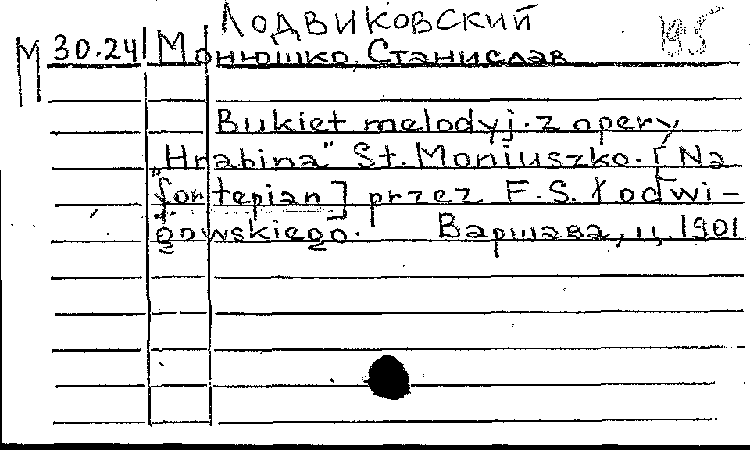 Лодвиковский
195
М 30.24 Монюшко Станислав
Bukiet melodyj z opery
„Hrabina" St. Moniuszko. [Na
fortepian] przez F. S. Łodwi-
gowskiego. Варшава, ц, 1901